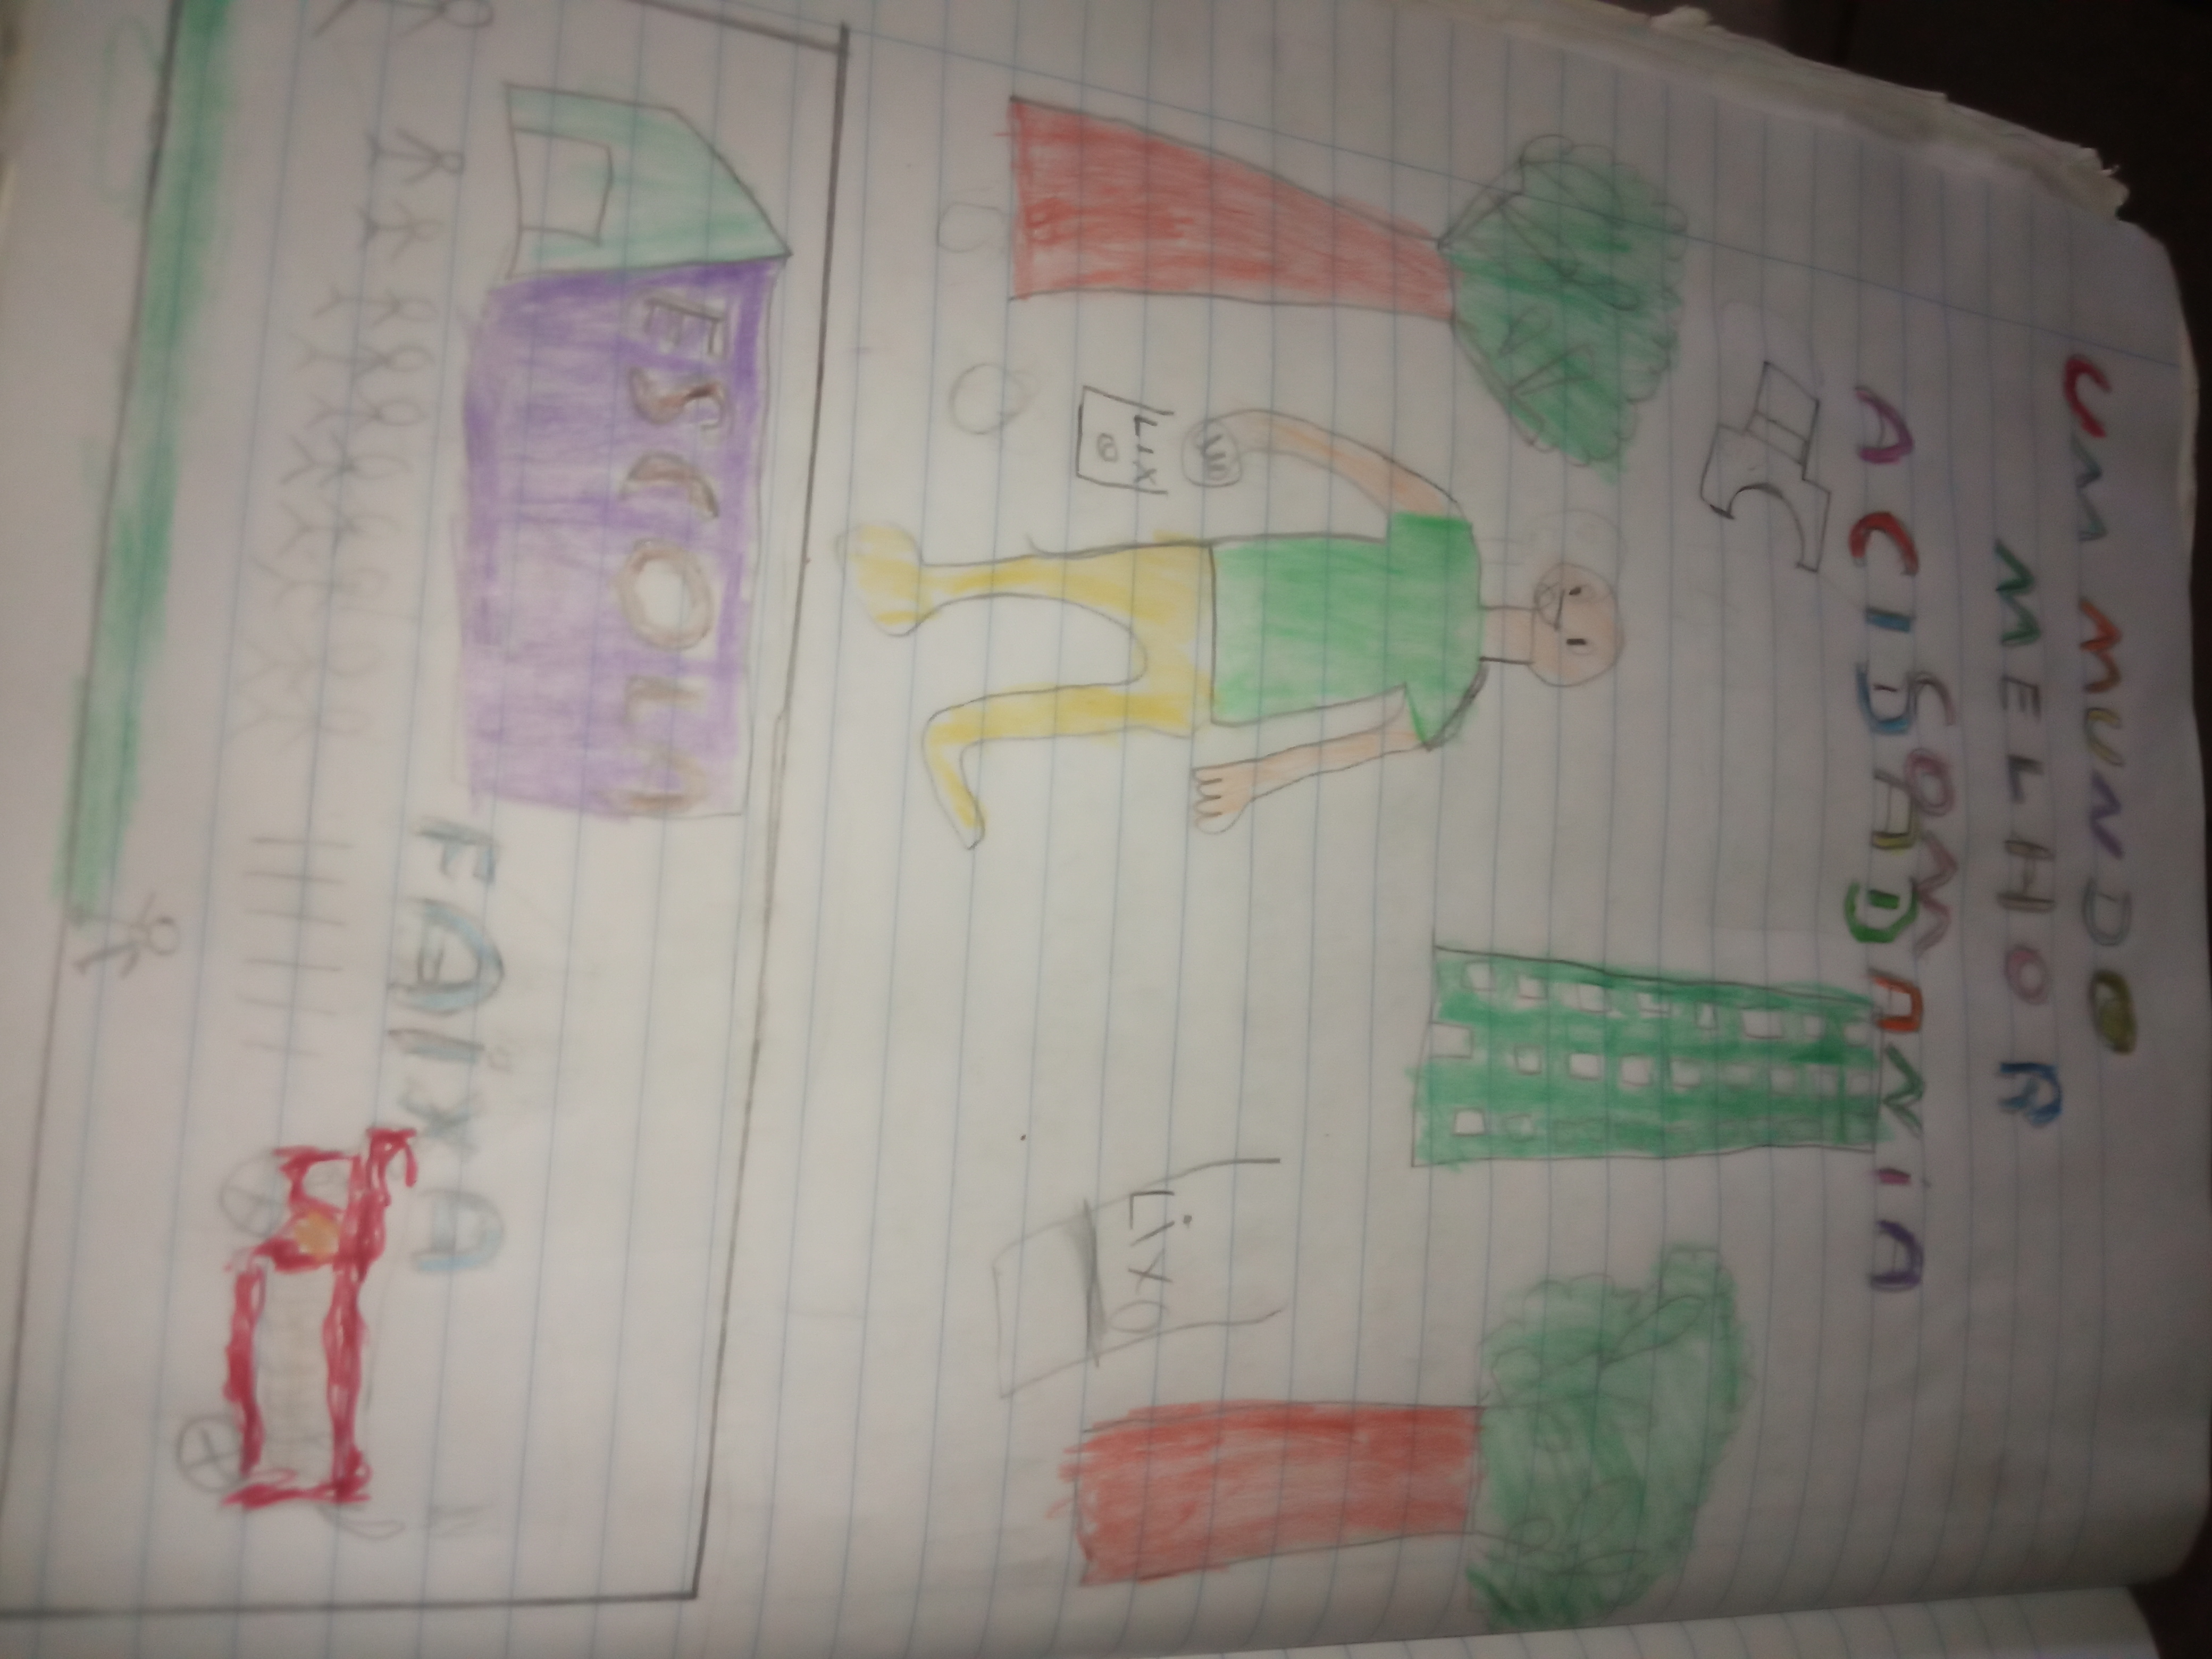 UM MUNDO
MELHOR
COM
A CIDADANIA
LIX
O
LixO
ESCOLA
FAiXA